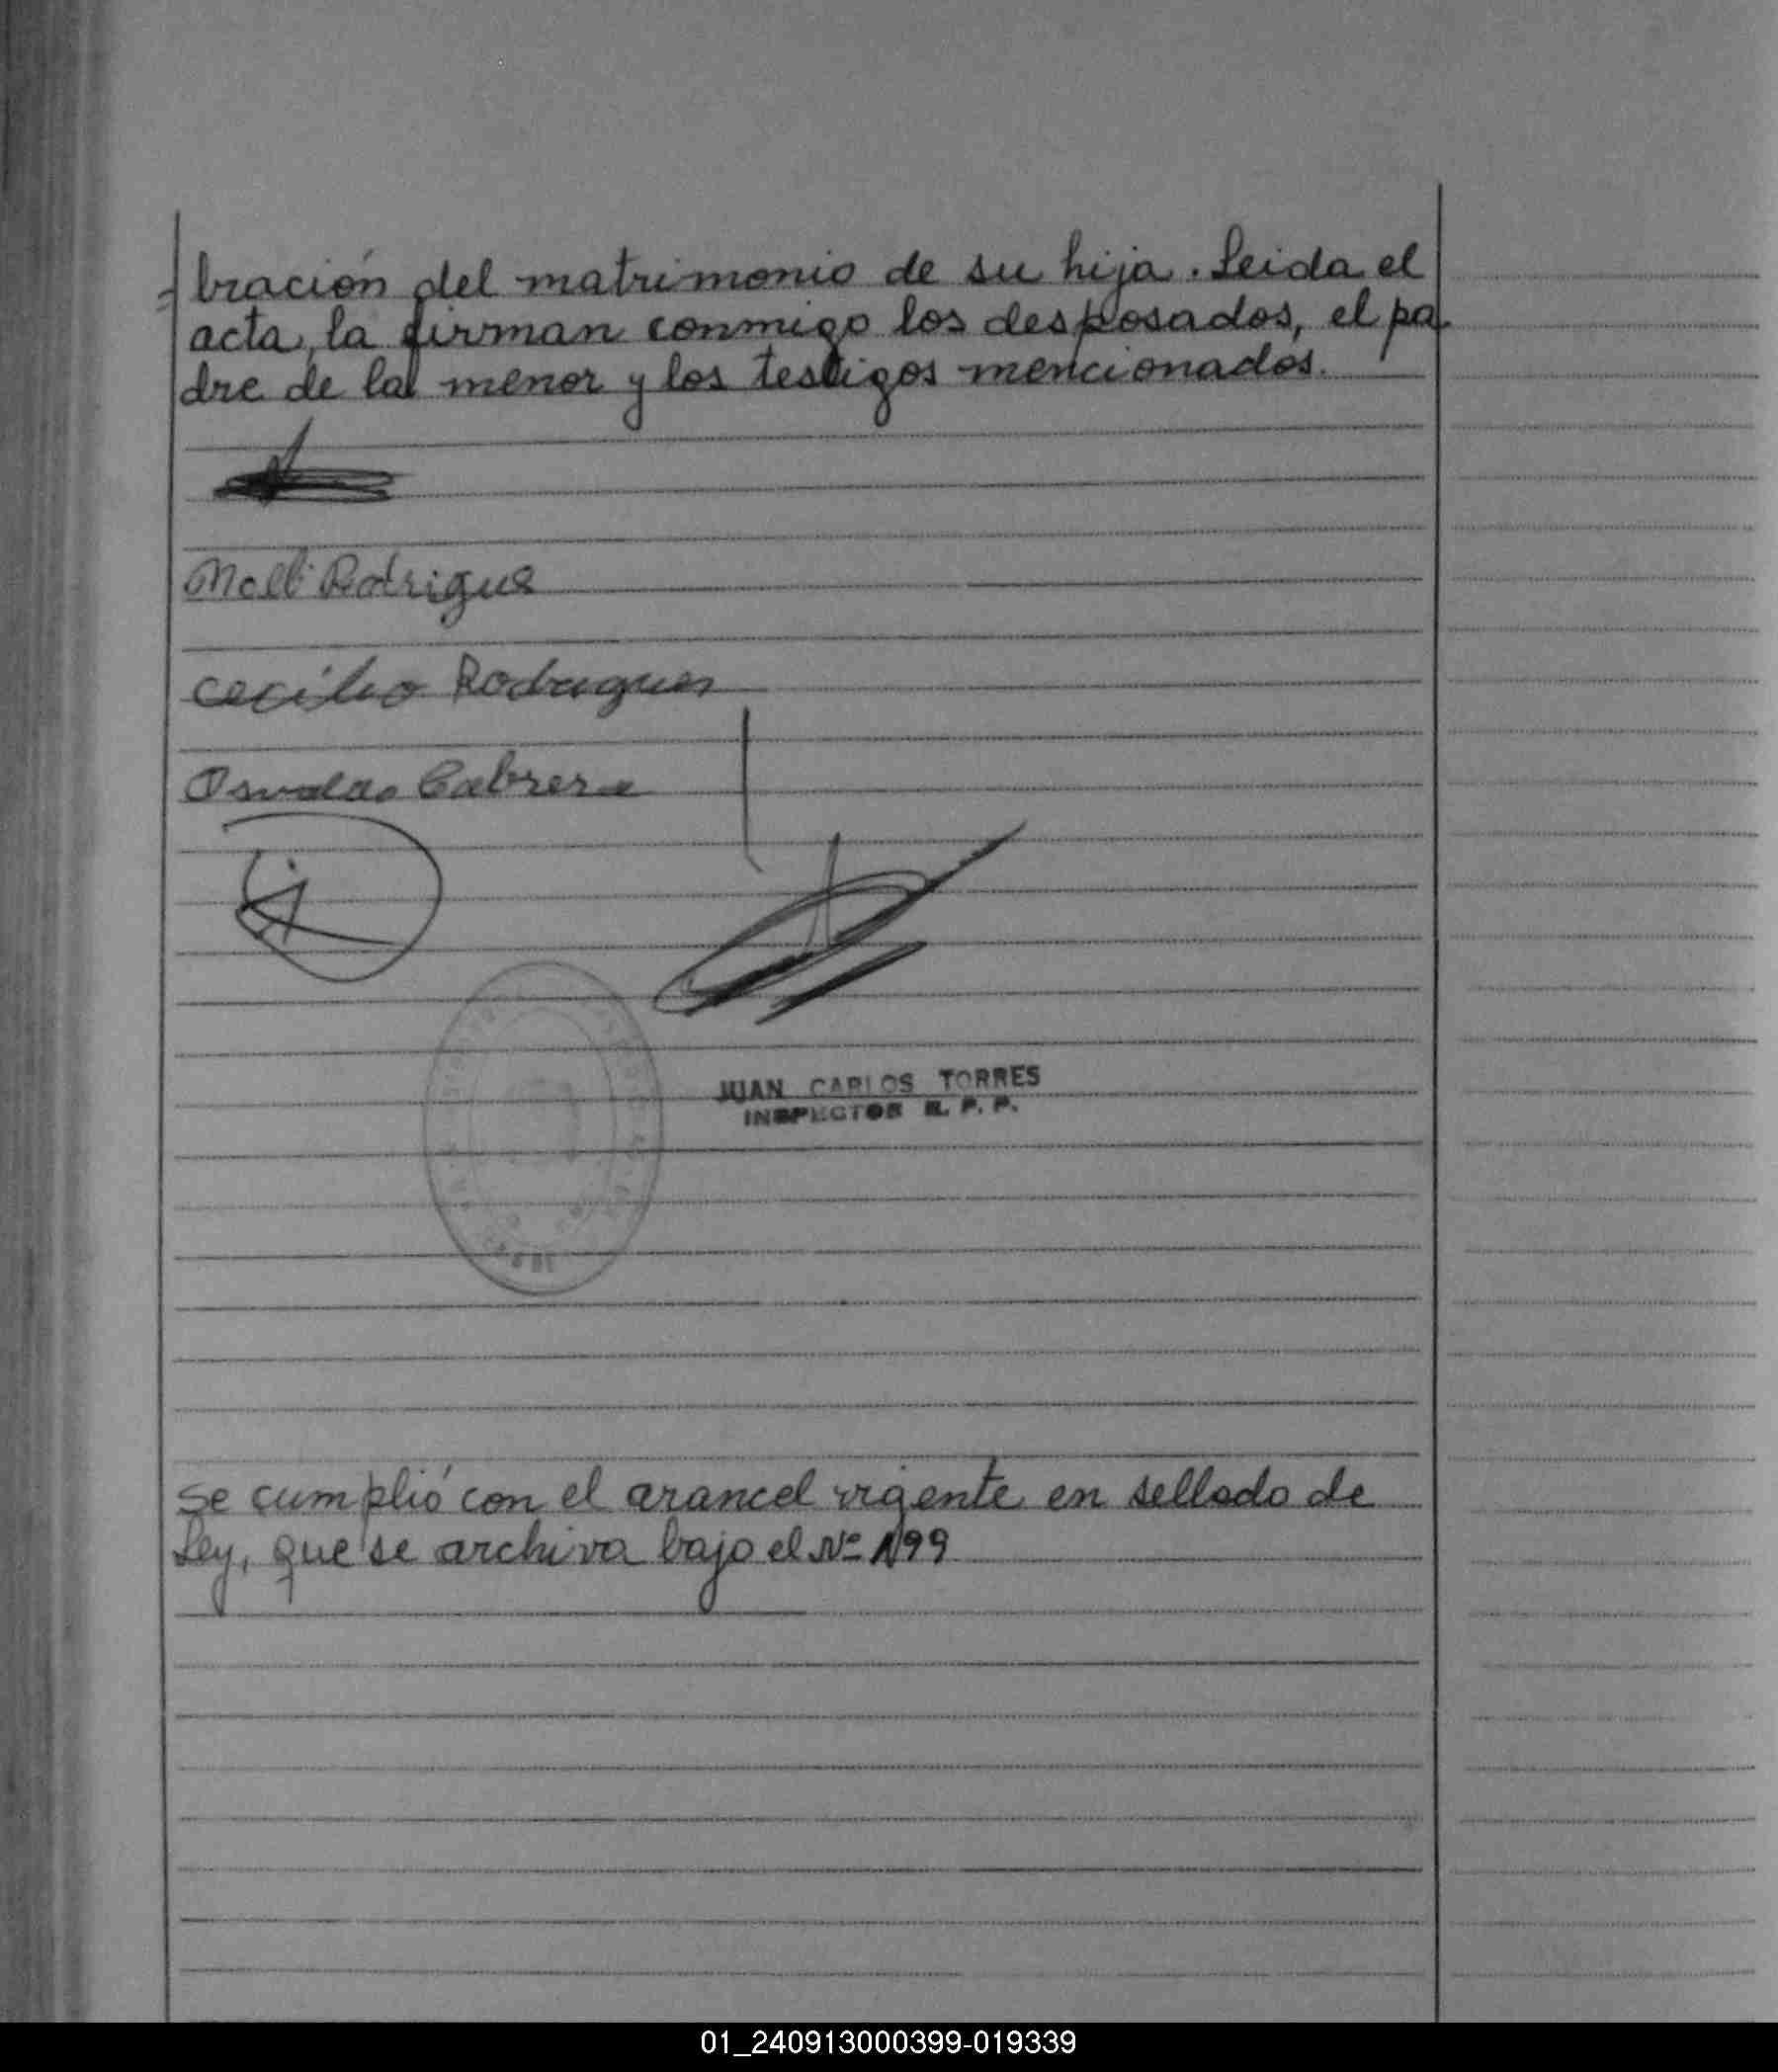 =bración del matrimonio de su hija. Leida el
acta, la firman conmigo los desposados, el pa
dre de la menor y los testigos mencionados.
Rodrigue
Cecilio Rodrigues
Osvaldo Cabrera
JUAN CARLOS TORRES
INSPECTOR R. P. P.
Se cumplió con el arancel vigente en sellado de
Ley, que se archiva bajo el Nº 199
01_240913000399-019339